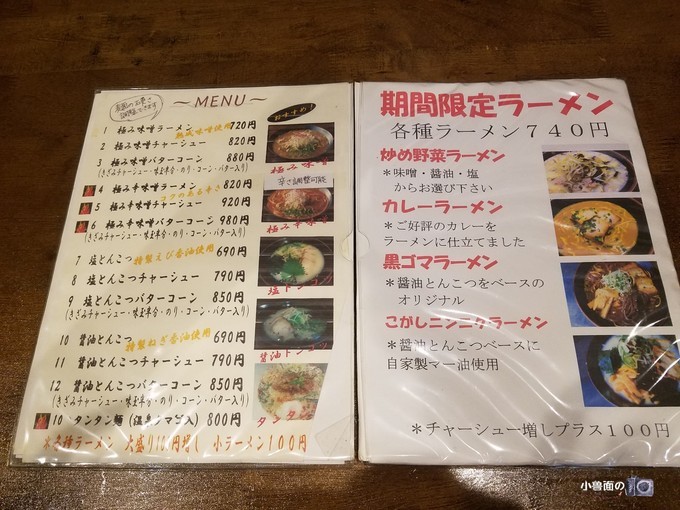 ~MENU~
1 極み味噌ラーメン 720円
熟成味噌使用
2 極み味噌チャーシュー 820円
3 極み味噌バターコーン 880円
(きざみチャーシュー・味玉半分・のり・コーン・バター入り)
4 極み辛味噌ラーメン 820円
コクのある辛さ
5 極み辛味噌チャーシュー 920円
6 極み辛味噌バターコーン 980円
(きざみチャーシュー・味玉半分・のり・コーン・バター入り)
7 塩とんこつ 690円
特製えび香油使用
8 塩とんこつチャーシュー 790円
9 塩とんこつバターコーン 850円
(きざみチャーシュー・味玉半分・のり・コーン・バター入り)
10 醤油とんこつ 690円
特製ねぎ香油使用
11 醤油とんこつチャーシュー 790円
12 醤油とんこつバターコーン 850円
(きざみチャーシュー・味玉半分・のり・コーン・バター入り)
10 タンタン麺 800円
*各種ラーメン 大盛り 小ラーメン100円
極み味噌
辛さ調整可能
極み辛味噌
塩トンコツ
醤油トンコツ
タンタン
期間限定ラーメン
各種ラーメン740円
炒め野菜ラーメン
*味噌・醤油・塩
からお選び下さい
カレーラーメン
*ご好評のカレーを
ラーメンに仕立てました
黒ゴマラーメン
*醤油とんこつをベースの
オリジナル
こがしニンニクラーメン
*醤油とんこつベースに
自家製マー油使用
*チャーシュー増しプラス100円
小兽面の